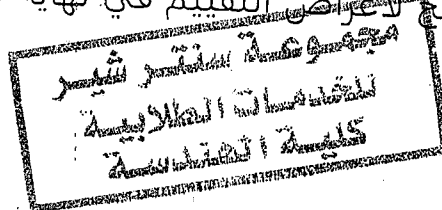 ج لأغراض التقييم في نهاية
مجموعة سنتر شير
للخدمات الطلابية
كلية الهندسة